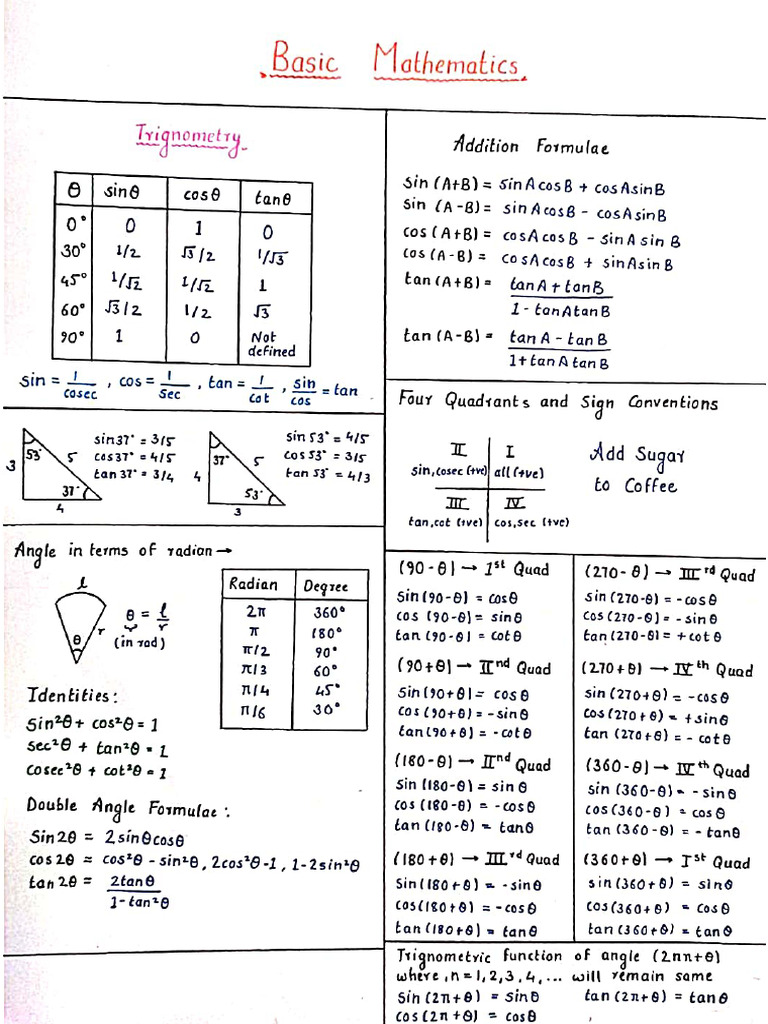 Basic Mathematics
Trignometry
θ sinθ cosθ tanθ
0° 0 1 0
30° 1/2 √3/2 1/√3
45° 1/√2 1/√2 1
60° √3/2 1/2 √3
90° 1 0 Not defined
sin = 1/cosec , cos = 1/sec , tan = 1/cot , sin/cos = tan
3 53° 5 37° 4
sin37° = 3/5
cos37° = 4/5
tan37° = 3/4
4 37° 5 53° 3
sin 53° = 4/5
cos 53° = 3/5
tan 53° = 4/3
Angle in terms of radian →
l
θ = l/r
r
θ
(in rad)
Radian Degree
2π 360°
π 180°
π/2 90°
π/3 60°
π/4 45°
π/6 30°
Identities:
sin²θ + cos²θ = 1
sec²θ + tan²θ = 1
cosec²θ + cot²θ = 1
Double Angle Formulae :.
Sin2θ = 2sinθcosθ
cos2θ = cos²θ - sin²θ , 2cos²θ-1 , 1-2sin²θ
tan2θ = 2tanθ
1-tan²θ
Addition Formulae
Sin (A+B) = sinAcosB + cosAsinB
sin (A-B) = sinAcosB - cosAsinB
cos (A+B) = cosAcosB - sinAsinB
cos (A-B) = cosAcosB + sinAsinB
tan (A+B) = tanA + tanB
1 - tanAtanB
tan (A-B) = tanA - tanB
1+tanAtanB
Four Quadrants and Sign Conventions
II I
sin,cosec (+ve) all (+ve)
III IV
tan,cot (+ve) cos,sec (+ve)
Add Sugar
to Coffee
(90-θ) → 1st Quad
Sin(90-θ) = cosθ
cos (90-θ) = sinθ
tan (90-θ) = cotθ
(90+θ) → IInd Quad
Sin(90+θ) = cosθ
cos(90+θ) = -sinθ
tan(90+θ) = -cotθ
(180-θ) → IInd Quad
sin (180-θ) = sinθ
cos (180-θ) = -cosθ
tan (180-θ) = tanθ
(180+θ) → IIIrd Quad
Sin(180+θ) = -sinθ
cos(180+θ) = -cosθ
tan (180+θ) = tanθ
(270-θ) → IIIrd Quad
sin (270-θ) = -cosθ
Cos (270-θ) = -sinθ
tan (270-θ) = +cotθ
(270+θ) → IVth Quad
sin (270+θ) = -cosθ
cos (270+θ) = +sinθ
tan (270+θ) = -cotθ
(360-θ) → IVth Quad
sin (360-θ) = -sinθ
cos (360-θ) = cosθ
tan (360-θ) = -tanθ
(360+θ) → Ist Quad
sin (360+θ) = sinθ
cos (360+θ) = cosθ
tan (360+θ) = tanθ
Trignometric function of angle (2nπ+θ)
where, n = 1,2,3,4,... will remain same
Sin (2π+θ) = sinθ tan (2π+θ) = tanθ
cos (2π+θ) = cosθ